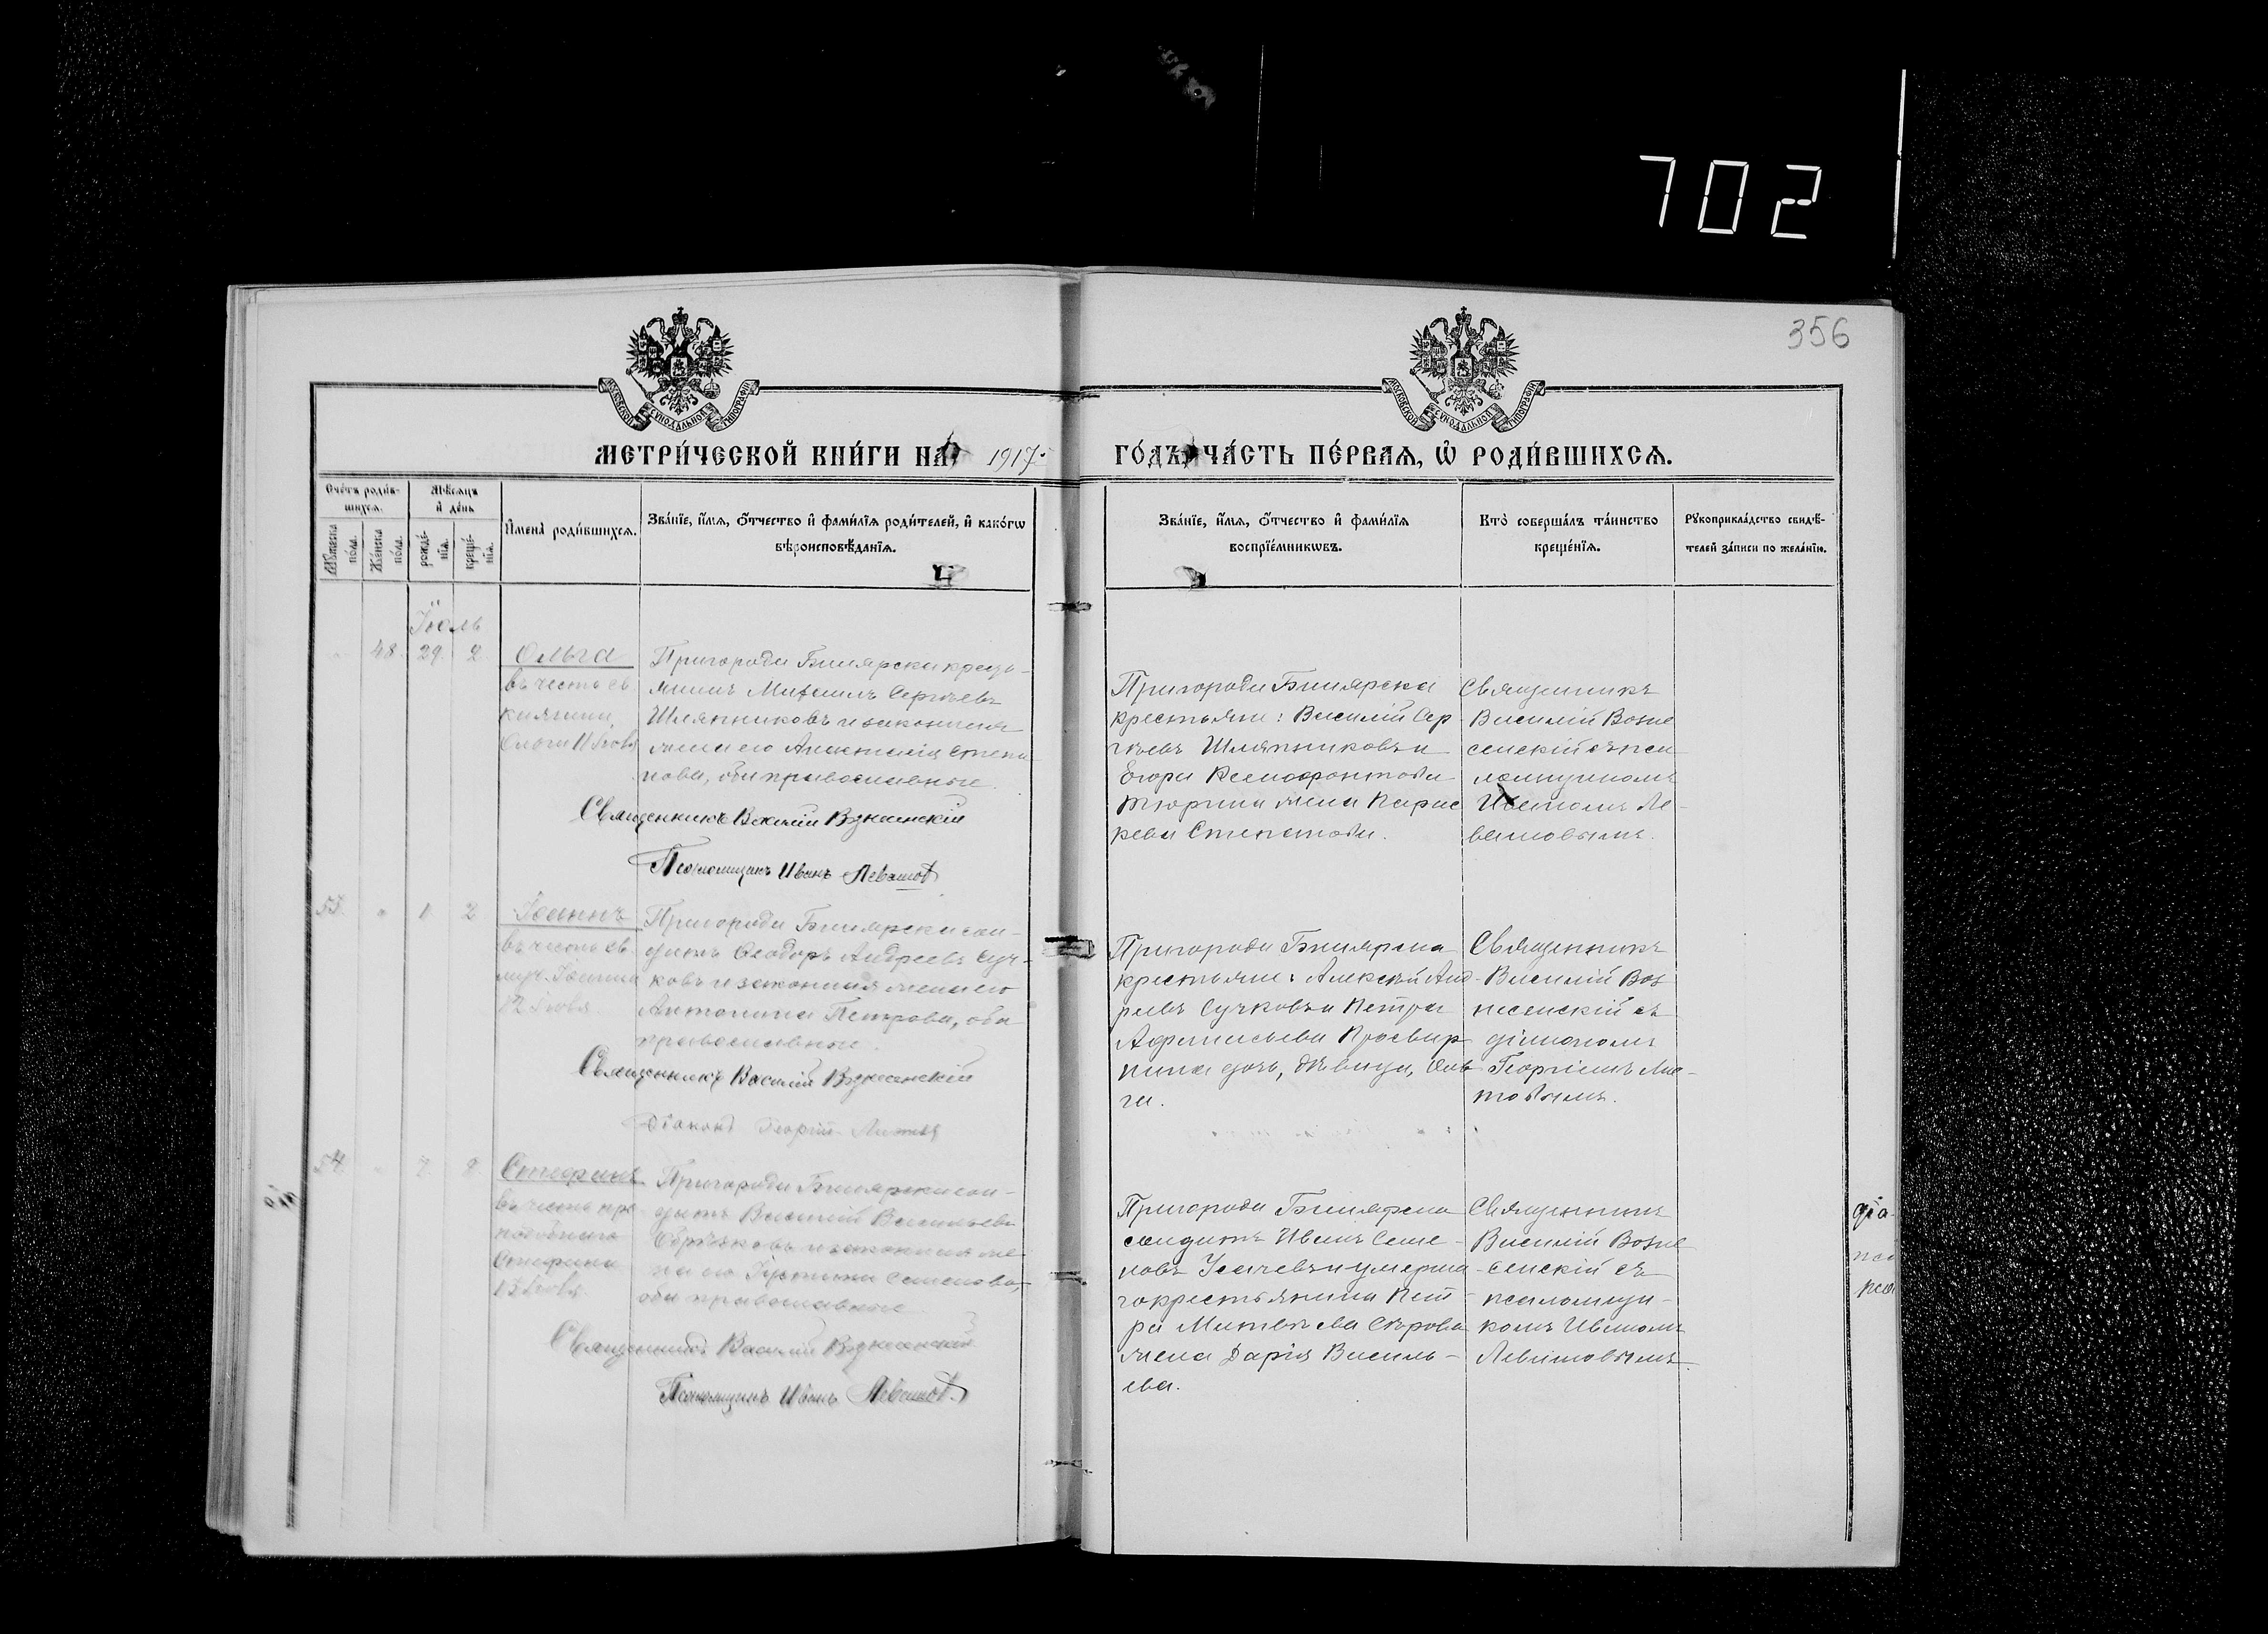 702
356
МОСКОВСКОЙ СУНОДАЛЬНОЙ ТИПОГРАФІИ
МОСКОВСКОЙ СУНОДАЛЬНОЙ ТИПОГРАФІИ
МЕТРИ́ЧЕСКОЙ КНИ́ГИ НА 1917. ГО́ДЪ, ЧА́СТЬ ПЕ́РВАЯ, Ѡ РОДИ́ВШИХСЯ.
Сче́тъ роди́в-
шихся.
Мѣ́сяцъ
и де́нь
Мꙋ́жеска
по́ла.
Же́нска
по́ла.
рожде́-
нїя.
креще́-
нїя.
И҆мена̀ роди́вшихся.
Зва́нїе, и҆́мя, ѻ҆́тчество и҆ фами́лїя роди́телей, и҆ како́гѡ
вѣроисповѣ́данїя.
Зва́нїе, и҆́мя, ѻ҆́тчество и҆ фами́лїя
воспрїе́мникѡвъ.
Кто̀ соверша́лъ та́инство
креще́нїя.
Рꙋкоприкла́дство свидѣ́-
телей за́писи по жела́нїю.
Іюль
48. 29. 2.
Ольга
въ честь св.
княгини
Ольги 11 Іюля
Пригорода Билярска кресть-
янинъ Михаилъ Сергѣевъ
Шляпниковъ и законная
жена его Анастасія Степа
нова, оба православные.
Священникъ Василій Вознесенскій
Псаломщикъ Иванъ Левашовъ
Пригорода Билярска
крестьяне: Василій Сер
гѣевъ Шляпниковъ и
Егора Ксенофонтова
Тюрина жена Парас
кева Степанова.
Священникъ
Василій Возне
сенскій съ пса
ломщикомъ
Иваномъ Ле-
вашовымъ.
55. " 1. 2.
Іоаннъ
въ честь св.
муч. Іоанна
12 Іюля
Пригорода Билярска сол-
датъ Ѳеодоръ Андреевъ Суч-
ковъ и законная жена его
Антонина Петрова, оба
православные.
Священникъ Василій Вознесенскій
Діаконъ Георгій
Пригорода Билярска
крестьяне: Алексѣй Анд-
реевъ Сучковъ и Петра
Афанасьева Просвир
нина дочь, дѣвица, Оль
га.
Священникъ
Василій Воз
несенскій съ
діакономъ
Георгіемъ
54. " 7. 8.
Стефанъ
въ честь пре
подобнаго
Стефана
13 Іюля.
Пригорода Билярска сол-
датъ Василій Васильевъ
и законная же
на его Іустина Семенова,
оба православные
Священникъ Василій Вознесенскій
Псаломщикъ Иванъ Левашовъ
Пригорода Билярска
солдатъ Иванъ Семе-
новъ Усачевъ и умерша
го крестьянина Пет
ра Матвѣева Сѣрова
жена Дарія Василь-
ева.
Священникъ
Василій Возне
сенскій съ
псаломщи-
комъ Иваномъ
Левашовымъ.
діа
пса